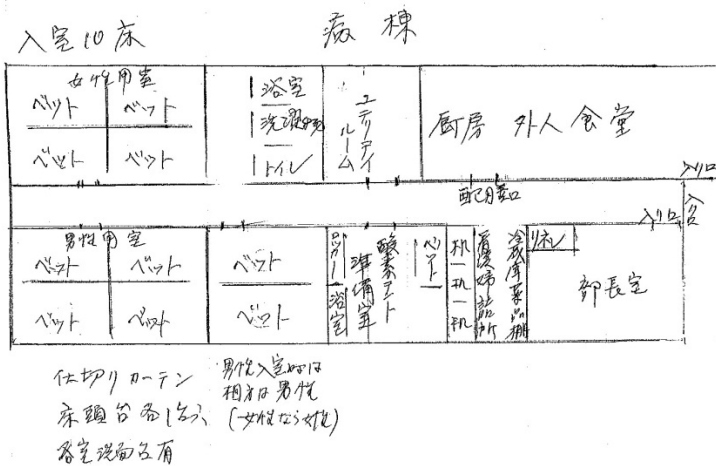 入室10床
病棟
女性用室
ベット
ベット
ベット
ベット
浴室
洗濯
トイレ
ユテリテイ
ルーム
厨房 外人食堂
入り口
配膳口
入口
入り口
男性用室
ベット
ベット
ベット
ベット
ベット
ベット
ロッカー
浴室
準備室
酸素テント
ベット
机
机
机
看護婦詰所
冷蔵庫薬品棚
リネン
部長室
仕切りカーテン
床頭台各1台
各室洗面台有
男性入室時は
相方は男性
(女性なら女性)